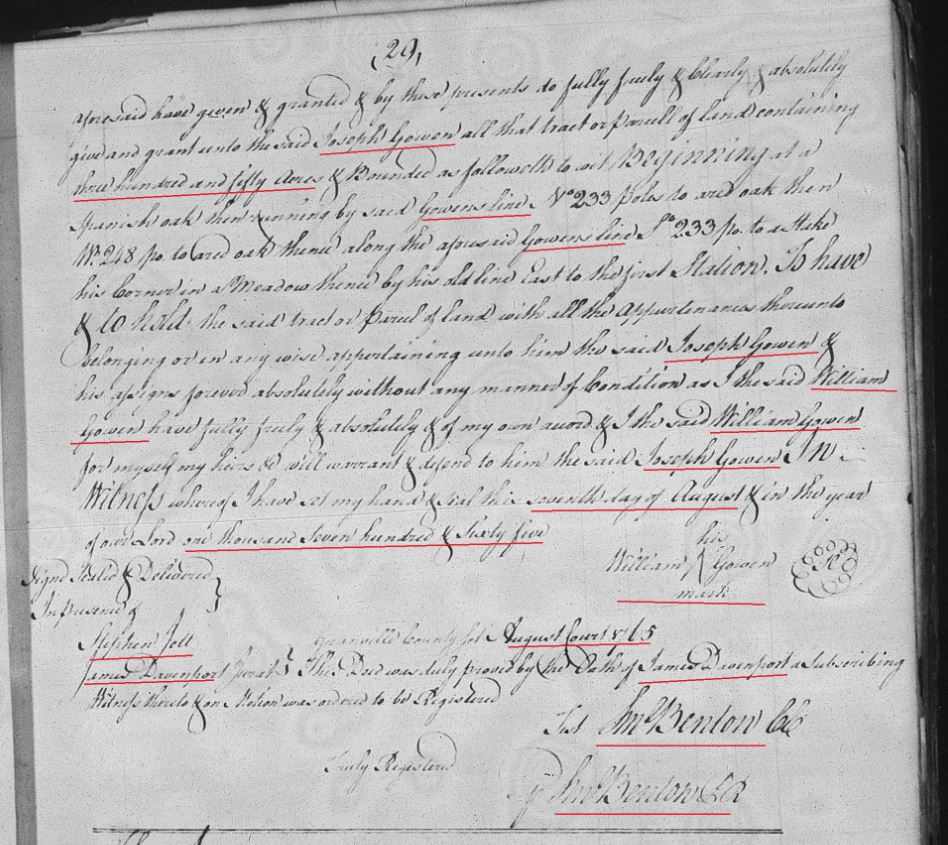 (29)
aforesaid have given & granted & by these presents do fully freely & Clearly & absolutely
give and grant unto the said Joseph Gowen all that tract or parcell of land containing
three hundred and fifty Acres & Bounded as followeth to wit Beginning at a
Spanish oak then runing by said Gowens line No 233 poles to a red oak then
Wt 248 po. to a red oak thence along the aforesaid Gowens line So 233 po. to a Stake
his Corner in a Meadow thence by his old line East to the first Station. To have
& to hold the said tract or parcel of land with all the Appurtenances thereunto
belonging or in any wise appertaining unto him the said Joseph Gowen &
his assigns forever absolutely without any manner of Condition as I the said William
Gowen have fully freely & absolutely & of my own accord & I the said William Gowen
for myself my heirs &c will warrant & defend to him the said Joseph Gowen In
Witness whereof I have set my hand & seal this seventh day of August & in the year
of our Lord one thousand Seven hundred & Sixty five
his
William Gowen
mark
Signd Sealed & Delivered
In presence of
Stephen Jett
James Davenport Jurat } Granville County Sst August Court 1765
This Deed was duly proved by the Oath of James Davenport a Subscribing
Witness thereto & on Motion was ordered to be Registered
Test Jno Benton CC
Truly Registered
Jno Benton CR